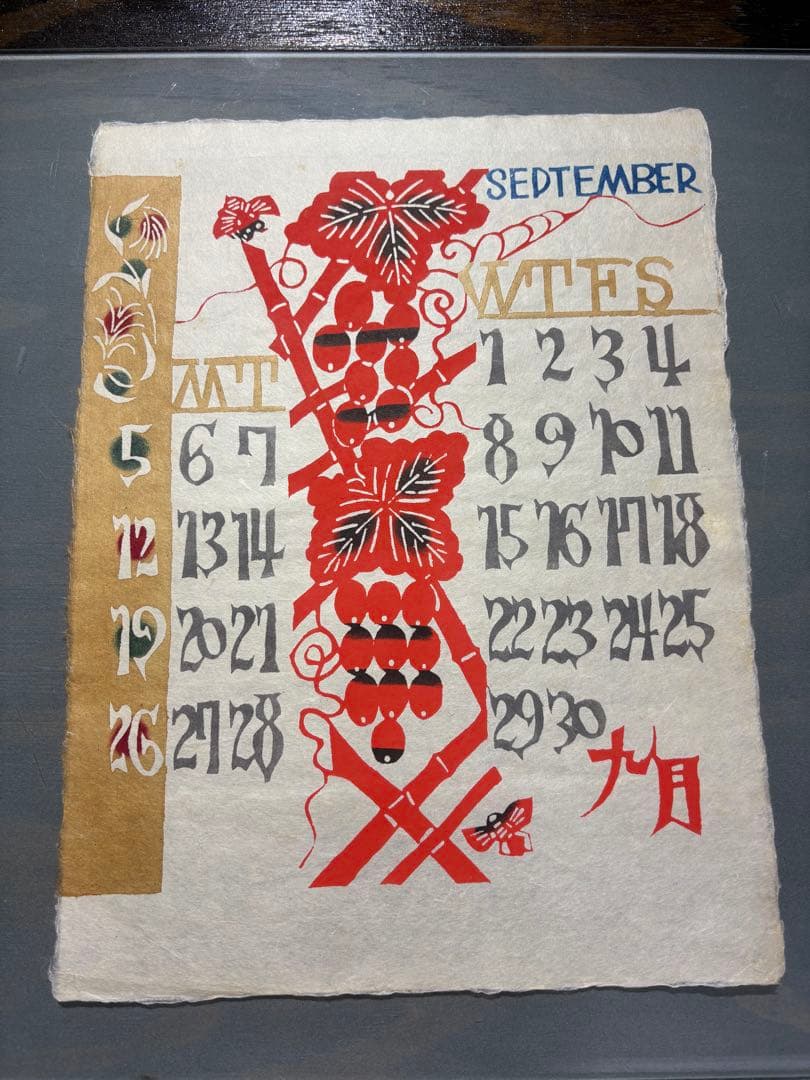 SEPTEMBER
M T W T F S
1 2 3 4
5 6 7 8 9 10 11
12 13 14 15 16 17 18
19 20 21 22 23 24 25
26 27 28 29 30
九月